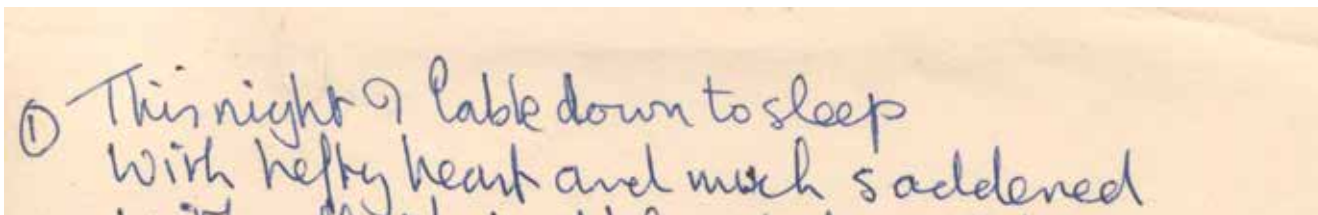 ① This night I lable down to sleep
With hefty heart and much saddened